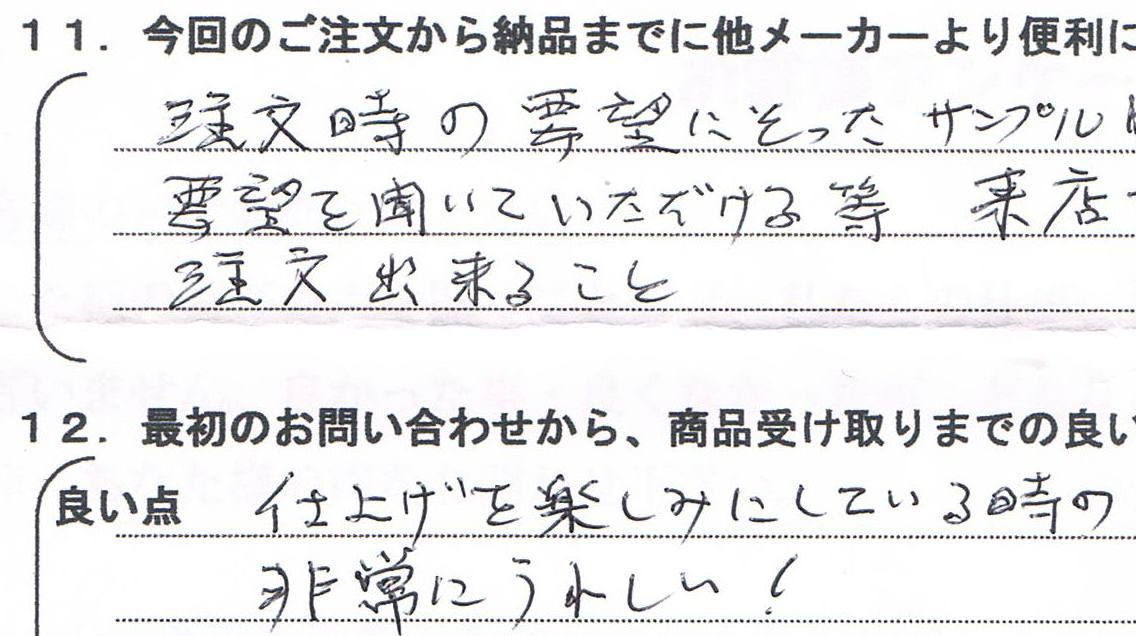 11. 今回のご注文から納品までに他メーカーより便利に
注文時の要望にそったサンプル
要望を聞いていただける等 来店
注文出来ること
12. 最初のお問い合わせから、商品受け取りまでの良い
良い点 仕上げを楽しみにしている時の
非常にうれしい!